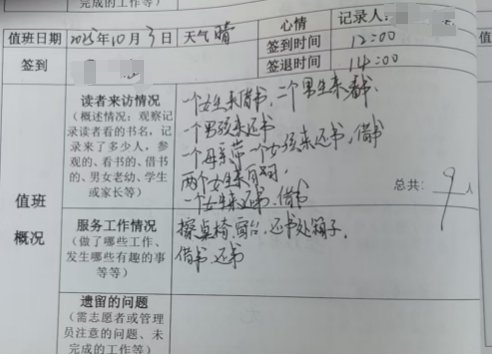 完成的工作等）
值班日期 2025年10月3日 天气 晴 心情 记录人：
签到时间 12:00
签到 签退时间 14:00
值班
概况
读者来访情况
（概述情况：观察记
录读者看的书名，记
录来了多少人，参
观的、看书的、借书
的、男女老幼、学生
或家长等）
一个女生来借书，二个男生来看书.
一个男孩来还书
一个母亲带一个女孩来还书，借书
两个女生来
一个女生来还书，借书
总共：9人
服务工作情况
（做了哪些工作、
发生哪些有趣的事
等等）
擦桌椅，窗台，还书处箱子，
借书，还书
遗留的问题
（需志愿者或管理
员注意的问题、未
完成的工作等）